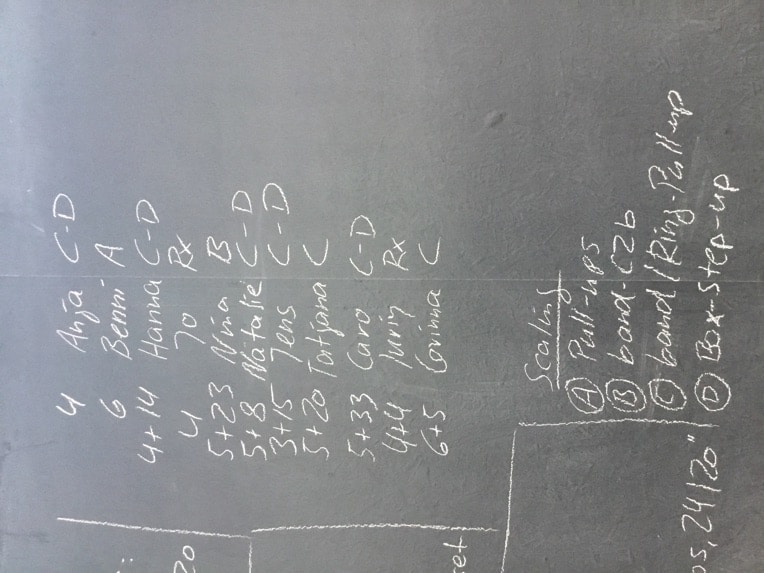 4 Anja C-D
6 Benni A
4+14 Hanna C-D
4 Jo Rx
5+23 Nina B
5+8 Natalie C-D
3+15 Jens C-D
5+20 Tatjana C
5+33 Caro C-D
4+4 Rx
6+5 Corinna C
Scaling
A Pull-ups
B band-C2b
C band/Ring-Pull-up
D Box-Step-up
:
20
set
os, 24/20"